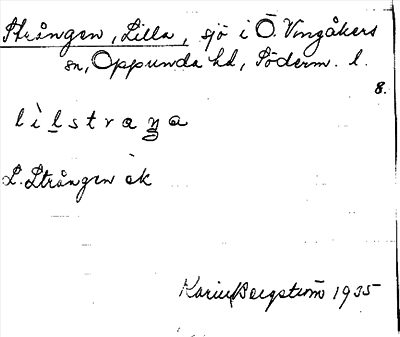 Strången, Lilla, sjö i Ö. Vingåkers
sn, Oppunda hd, Söderm. l.
8.
lìlstraŋa
L. Strången ek
Karin Bergström 1935